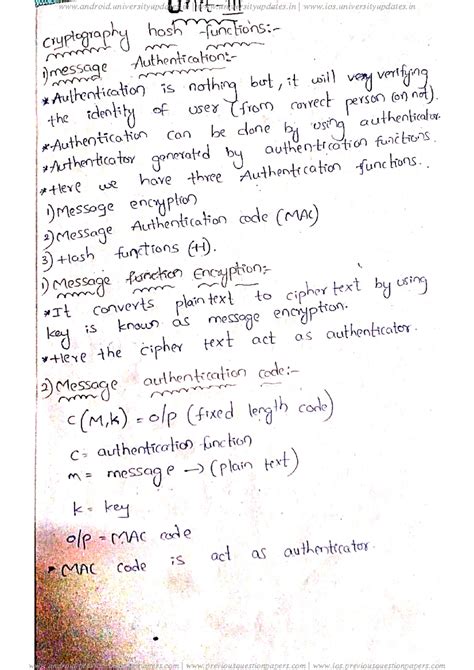 www.android.universityupdates.in | www.universityupdates.in | www.ios.universityupdates.in
Unit-III
Cryptography hash functions:-
1) message Authentication:-
* Authentication is nothing but, it will very verifying
the identity of user (from correct person (or) not).
* Authentication can be done by using authenticator.
* Authenticator generated by authentication functions.
* Here we have three Authentication functions.
1) Message encryption
2) Message Authentication code (MAC)
3) Hash functions (H).
1) Message function Encryption:-
* It converts plain text to cipher text by using
key is known as message encryption.
* Here the cipher text act as authenticator.
2) Message authentication code:-
C(M,K) = o/p (fixed length code)
C = authentication function
m = message → (plain text)
k = key
o/p = MAC code
* MAC code is act as authenticator.
www.android.previousquestionpapers.com | www.previousquestionpapers.com | www.ios.previousquestionpapers.com